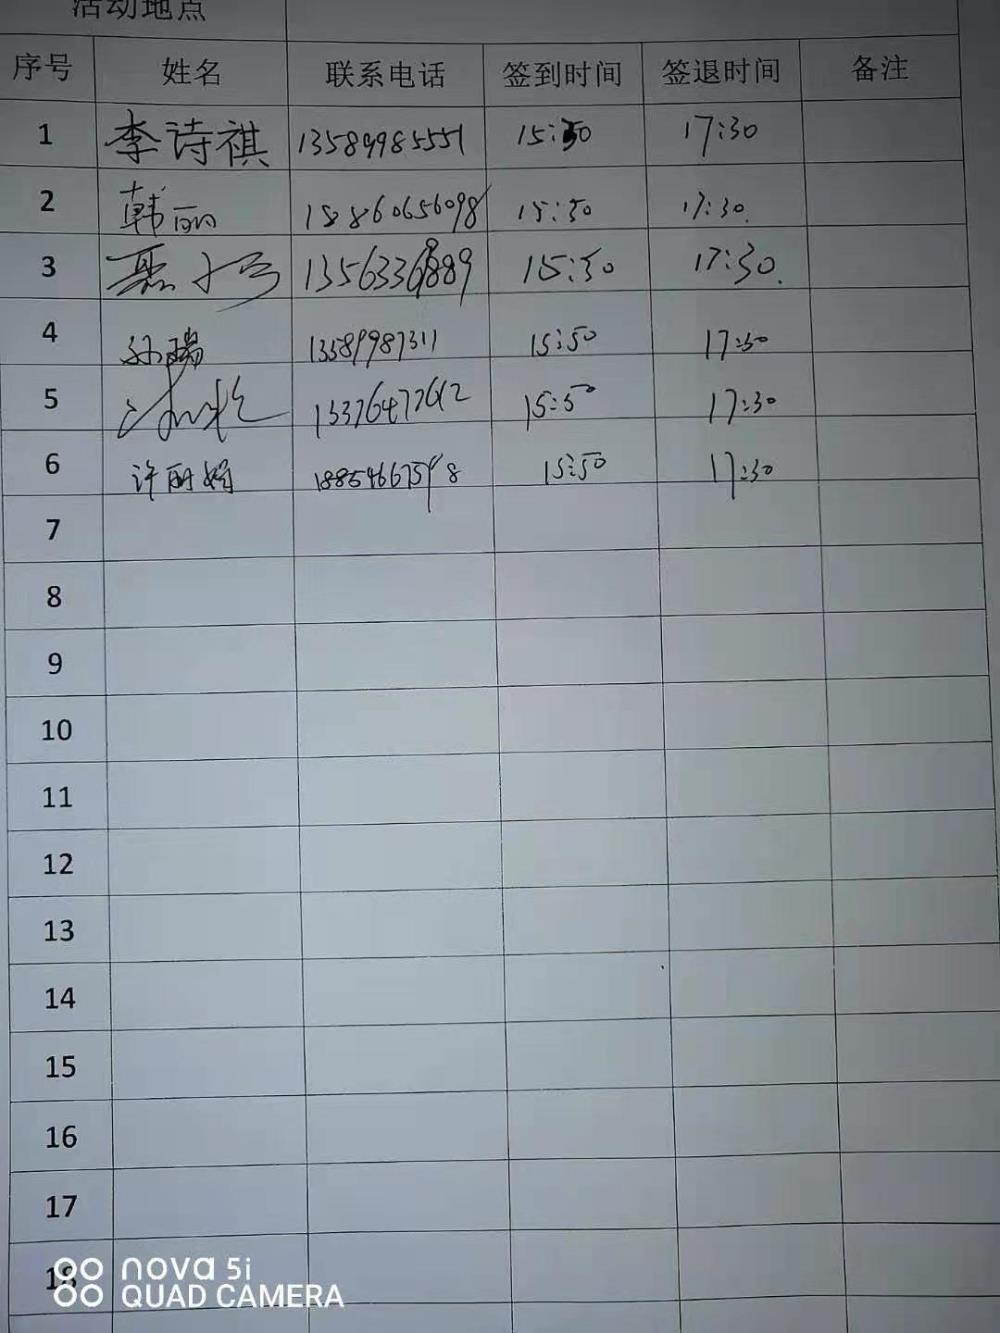 活动地点
序号 姓名 联系电话 签到时间 签退时间 备注
1 李诗祺 13589985551 15:50 17:30
2 韩丽 15860656098 15:50 17:30
3 15:50 17:30
4 孙瑞 13589987311 15:50 17:30
5 13376477612 15:50 17:30
6 许丽娟 15:50 17:30
7
8
9
10
11
12
13
14
15
16
17
18
nova 5i
QUAD CAMERA